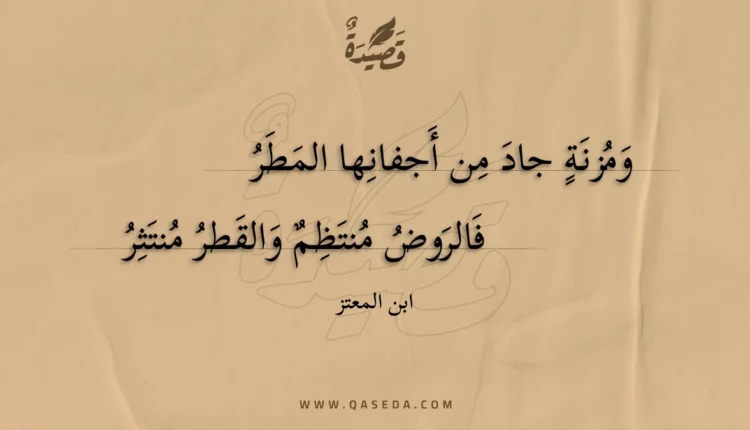 قَصِيدَةٌ
وَمُزنَةٍ جادَ مِن أَجفانِها المَطَرُ
فَالرَوضُ مُنتَظِمٌ وَالقَطرُ مُنتَثِرُ
ابن المعتز
WWW.QASEDA.COM